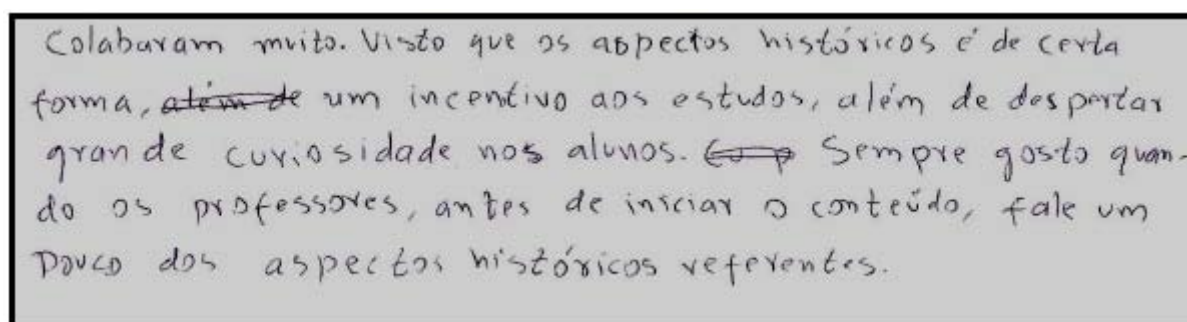 Colaburam muito. Visto que os aspectos históricos é de certa
forma, além de um incentivo aos estudos, além de despertar
grande curiosidade nos alunos. Sempre gosto quan-
do os professores, antes de iniciar o conteúdo, fale um
pouco dos aspectos históricos referentes.